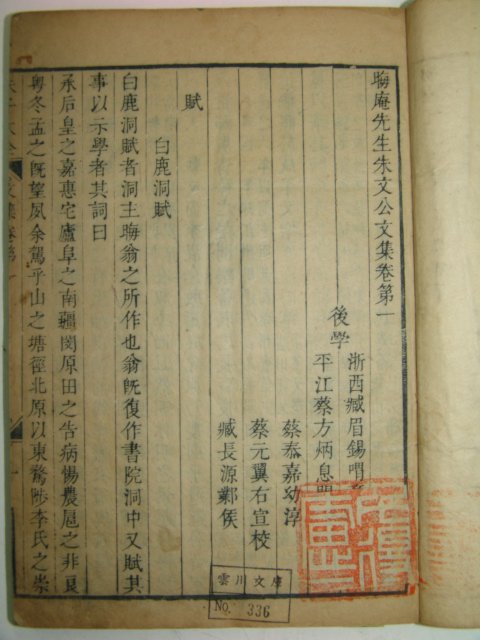 晦庵先生朱文公文集卷第一
浙西臧眉錫喟
後學
平江蔡方炳息
蔡泰嘉幼淳
蔡元翼右宣校
臧長源鄴侯
賦
白鹿洞賦
白鹿洞賦者洞主晦翁之所作也翁旣復作書院洞中又賦其
事以示學者其詞曰
承后皇之嘉惠宅廬阜之南疆閔原田之告病惕農扈之非良
粵冬孟之旣望夙余駕乎山之塘徑北原以東騖陟李氏之崇
雲川文庫
No. 336